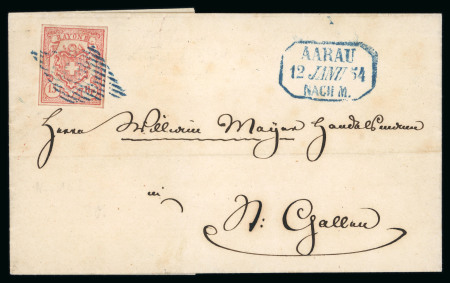 RAYON
15
AARAU
12 JANV 54
NACH M.
Herrn Willwin Mayer Handelsmann
in
St: Gallen